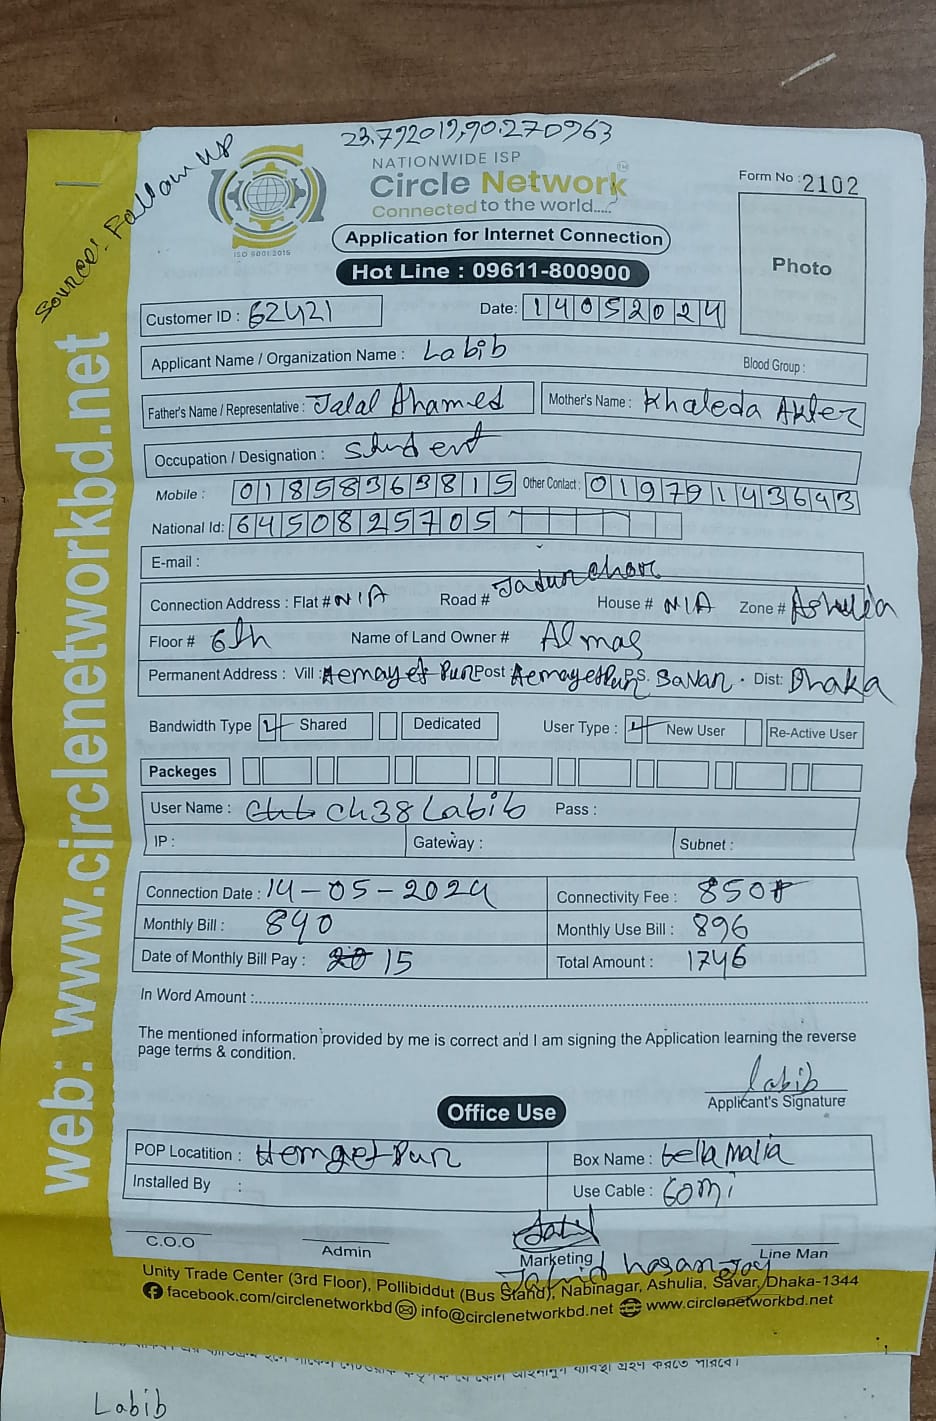 23.792019,90.270963
Source: Follow up
NATIONWIDE ISP
Circle Network
Connected to the world.....
ISO 9001:2015
Application for Internet Connection
Hot Line : 09611-800900
Form No : 2102
Photo
Customer ID : 62421
Date: 14052024
Applicant Name / Organization Name : Labib
Blood Group :
Father's Name / Representative : Jalal Ahamed
Mother's Name : Khaleda Akter
Occupation / Designation : Student
Mobile : 01858363815 Other Contact : 01979143643
National Id: 6450825705
E-mail :
Connection Address : Flat # N/A Road # Jadurchor House # N/A Zone # Ashulia
Floor # 6th Name of Land Owner # Almas
Permanent Address : Vill : Hemayet Pur Post : HemayetPur P.S. Savar. Dist: Dhaka
Bandwidth Type Shared Dedicated User Type : New User Re-Active User
Packeges
User Name : ch38Labib Pass :
IP : Gateway : Subnet :
Connection Date : 14-05-2024 Connectivity Fee : 850
Monthly Bill : 840 Monthly Use Bill : 896
Date of Monthly Bill Pay : 20 15 Total Amount : 1746
In Word Amount :
The mentioned information provided by me is correct and I am signing the Application learning the reverse
page terms & condition.
Labib
Applicant's Signature
Office Use
POP Locatition : HemgetPur Box Name : bella Malia
Installed By : Use Cable : 60mi
C.O.O Admin Marketing Line Man
Jahid hasan Joy
Unity Trade Center (3rd Floor), Pollibiddut (Bus Stand), Nabinagar, Ashulia, Savar, Dhaka-1344
facebook.com/circlenetworkbd info@circlenetworkbd.net www.circlenetworkbd.net
web: www.circlenetworkbd.net
Labib